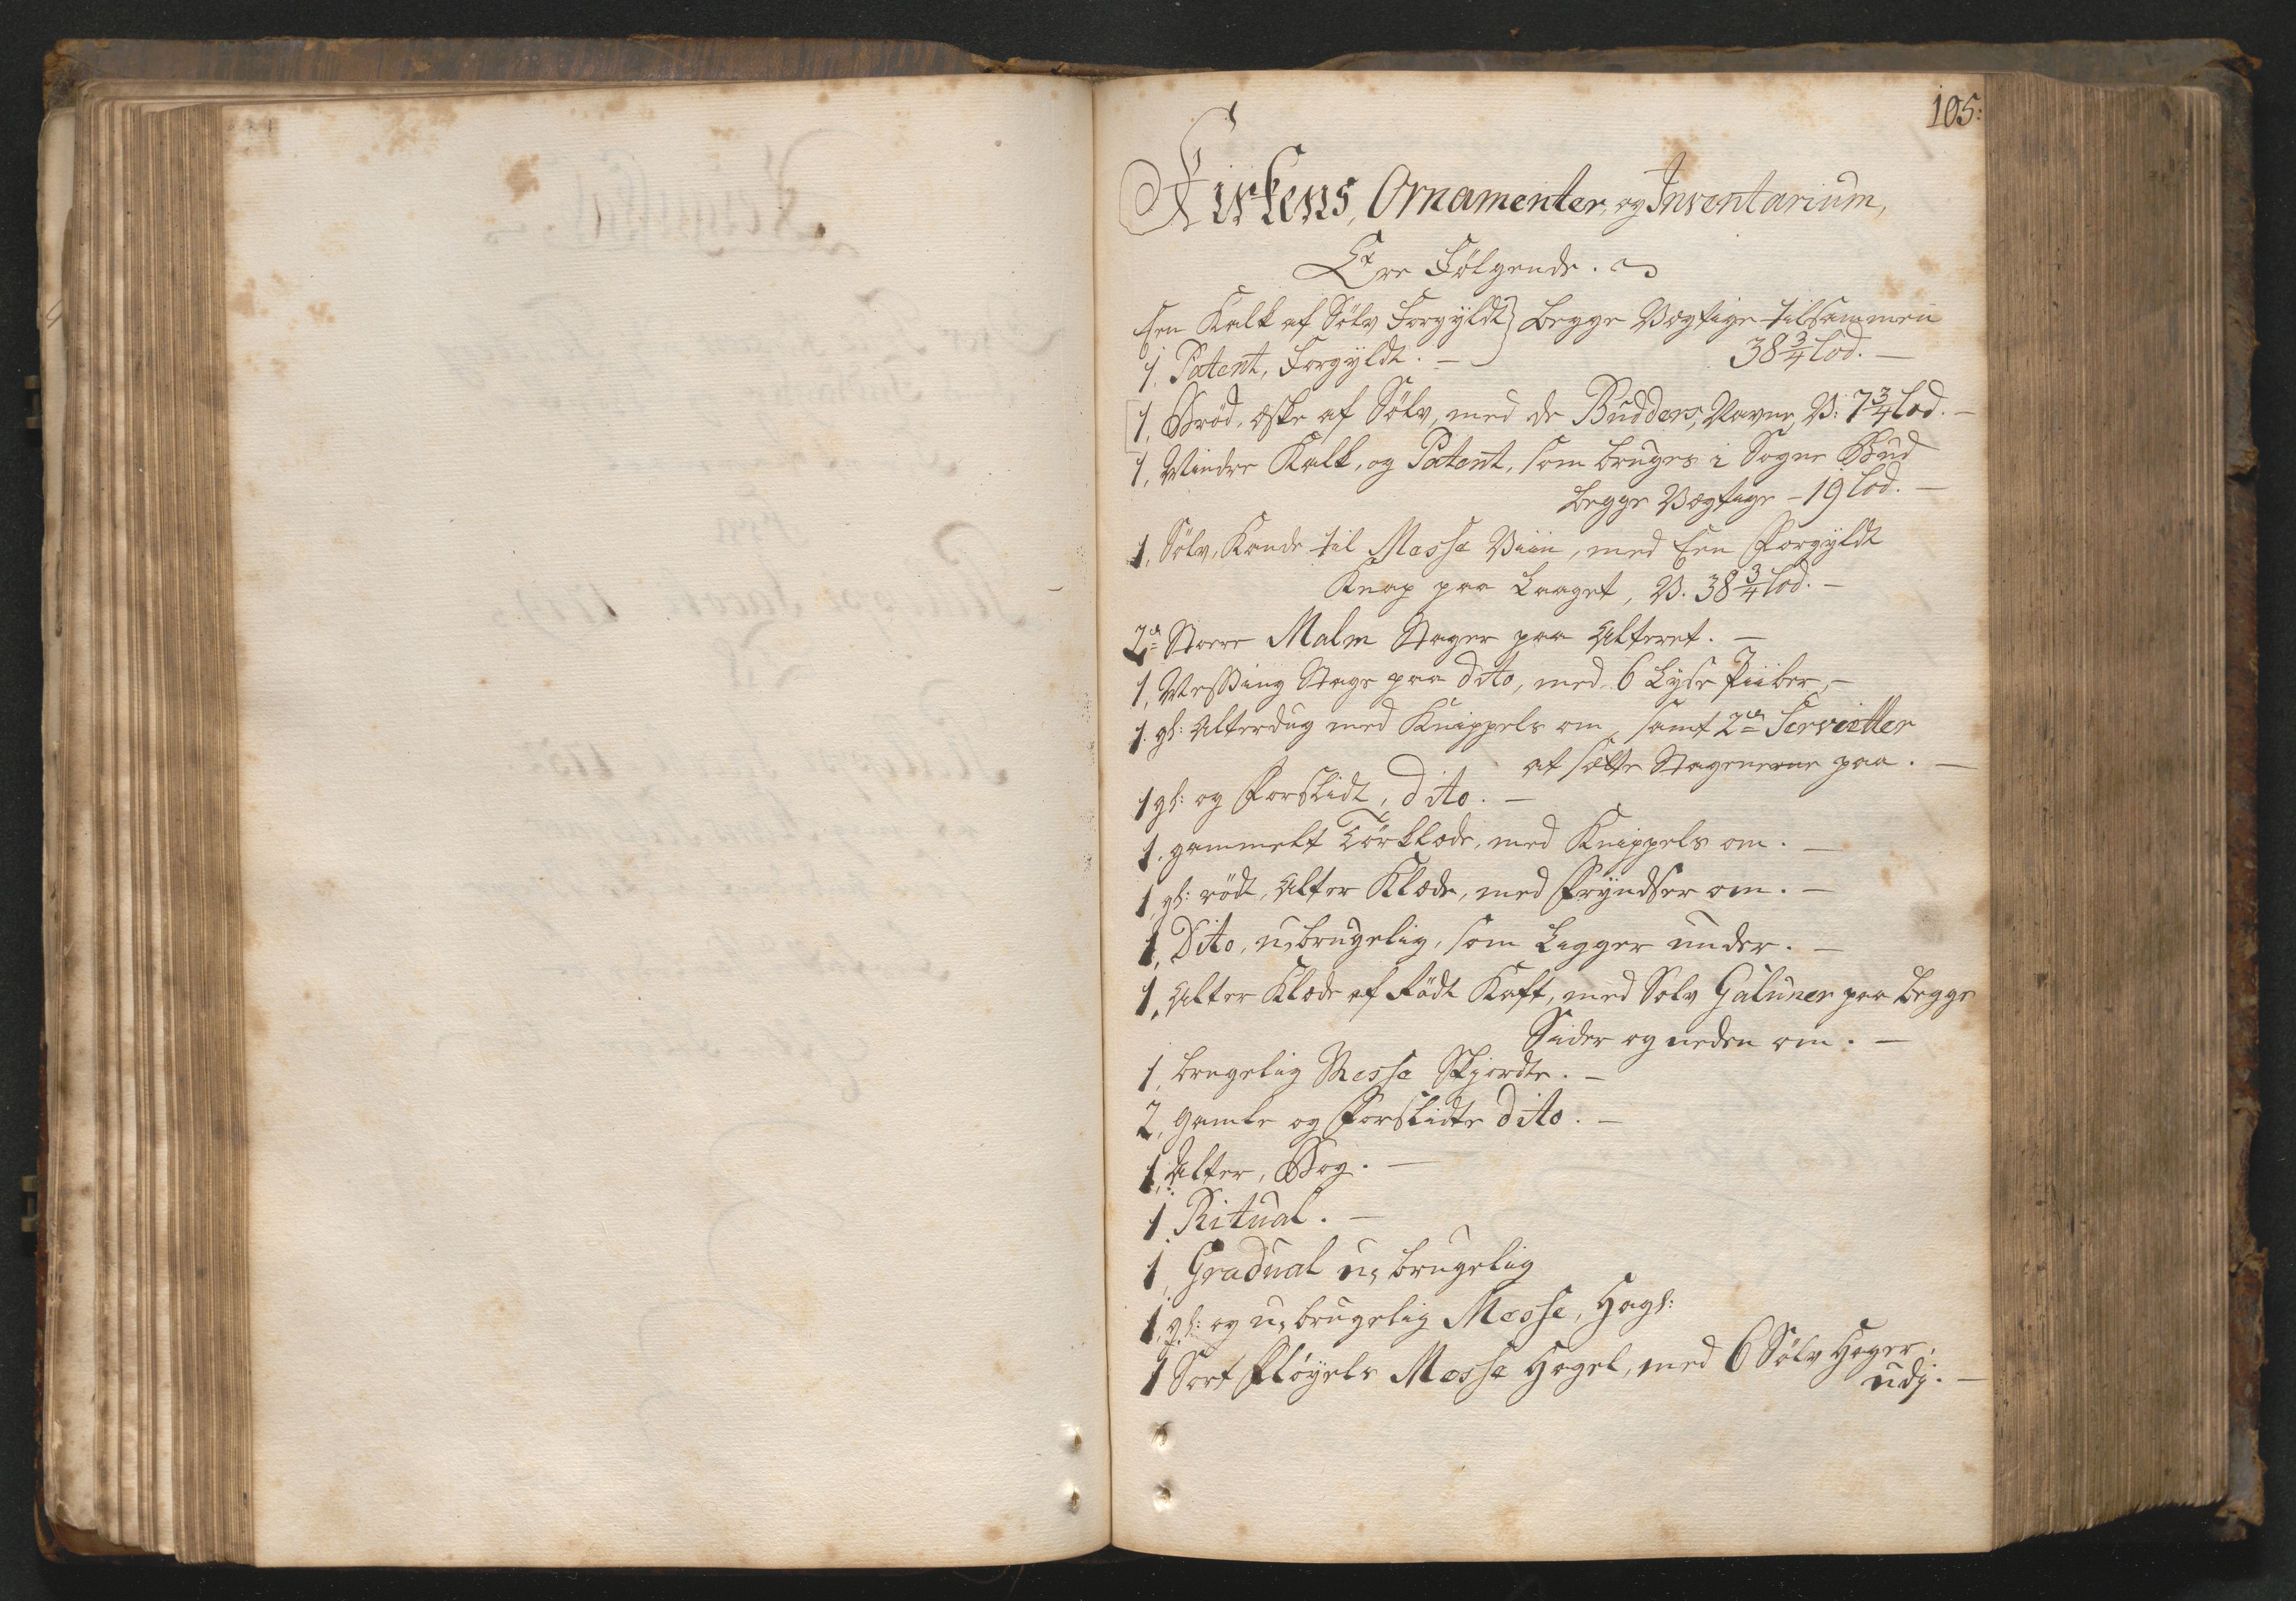 105:
Kirkens, Ornamenter, og Inventarium,
Ere Følgende.
Een Kalk af Sølv Forgyldt } begge Vegtige tilsammen
1, Patent, Forgyldt. — 38 3/4 Lod. —
1, Brød, Æske af Sølv, med de Budders, Navne, V: 7 3/4 Lod. —
1, Mindre Kalk, og Patent, som bruges i Sogne Bud
begge Vegtige — 19 Lod. —
1, Sølv, Kande til Messe Viin, med Een Forgyldt
Knap paa Laaget, V. 38 3/4 Lod. —
2de Store Malm Stager paa Alteret. —
1, Messing Stage paa dito, med 6 Lyse Piiber, —
1. gl: Alterdug med Knippels om, samt 2de Servietter
at sætte Stagenerne paa. —
1 gl: og Forslidt, dito. —
1, gammelt Tørklæde, med Knippels om. —
1, gl: rødt, Alter Klæde, med Fryndser om. —
1, Dito, u,brugelig, som Ligger under. —
1, Alter Klæde af Rødt Kaft, med Sølv Galuner paa begge
Sider og neden om. —
1, brugelig Messe Skjordte. —
2, Gamle og Forslidte dito. —
1, Alter, Bog. —
1 Ritual. —
1, Gradual u, brugelig
1, gl: og u, brugelig Messe, Hagl:
1 Sort Fløyels Messe Hagel, med 6 Sølv Hager,
udj. —